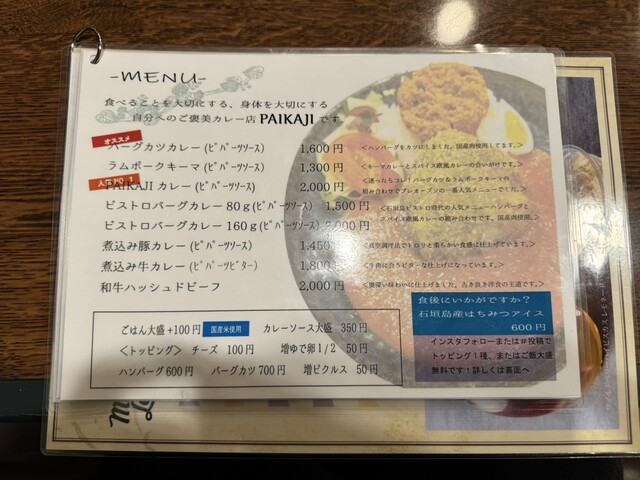 -MENU-
食べることを大切にする、身体を大切にする
自分へのご褒美カレー店 PAIKAJI です
オススメ
バーグカツカレー(ピパーツソース) 1,600円 <ハンバーグをカツにしました。国産肉使用してます。>
ラムポークキーマ(ピパーツソース) 1,300円 <キーマカレーとスパイス欧風カレーの合いがけです。>
人気NO.1
PAIKAJIカレー(ピパーツソース) 2,000円 <迷ったらコレ!バーグカツ&ラムポークキーマの
組み合わせでプレオープンの一番人気メニューでした。>
ビストロバーグカレー 80g(ピパーツソース) 1,500円 <石垣島ビストロ時代の人気メニューハンバーグと
ビストロバーグカレー 160g(ピパーツソース) 2,000円 スパイス欧風カレーの組み合わせです。国産肉使用。>
煮込み豚カレー(ピパーツソース) 1,450円 <真空調理法でトロッと柔らかい食感に仕上げています。>
煮込み牛カレー(ピパーツビター) 1,800円 <牛肉に合うビターな仕上げになっています。>
和牛ハッシュドビーフ 2,000円 <濃深い味わいに仕上げました。古き良き洋食の王道です。>
ごはん大盛+100円 国産米使用 カレーソース大盛 350円
<トッピング> チーズ 100円 増ゆで卵1/2 50円
ハンバーグ600円 バーグカツ700円 増ピクルス 50円
食後にいかがですか?
石垣島産はちみつアイス
600円
インスタフォローまたは#投稿で
トッピング1種、またはご飯大盛
無料です!詳しくは裏面へ